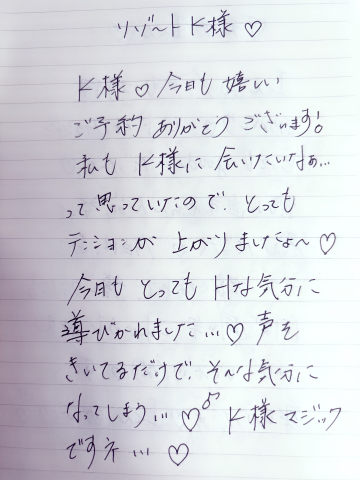 リゾート K様♡
K様♡今日も嬉しい
ご予約ありがとうございます!
私も K様に会いたいなぁ…
って思っていたので、とっても
テンションが上がりましたよ〜♡
今日も とっても Hな気分に
導びかれました…♡声を
きいてるだけで、そんな気分に
なってしまう…♡♪ K様マジック
ですネ…♡